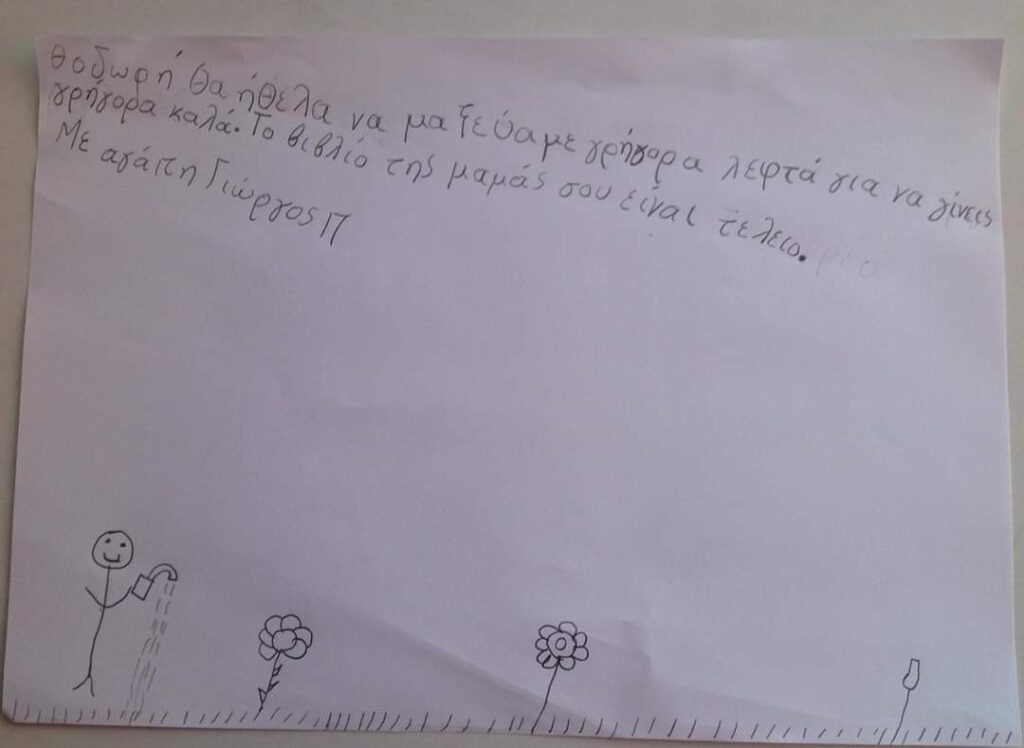 Θοδωρή θα ήθελα να μαζεύαμε γρήγορα λεφτά για να γίνεις
γρήγορα καλά. Το βιβλίο της μαμάς σου είναι τελειο.
Με αγάπη Γιώργος Π